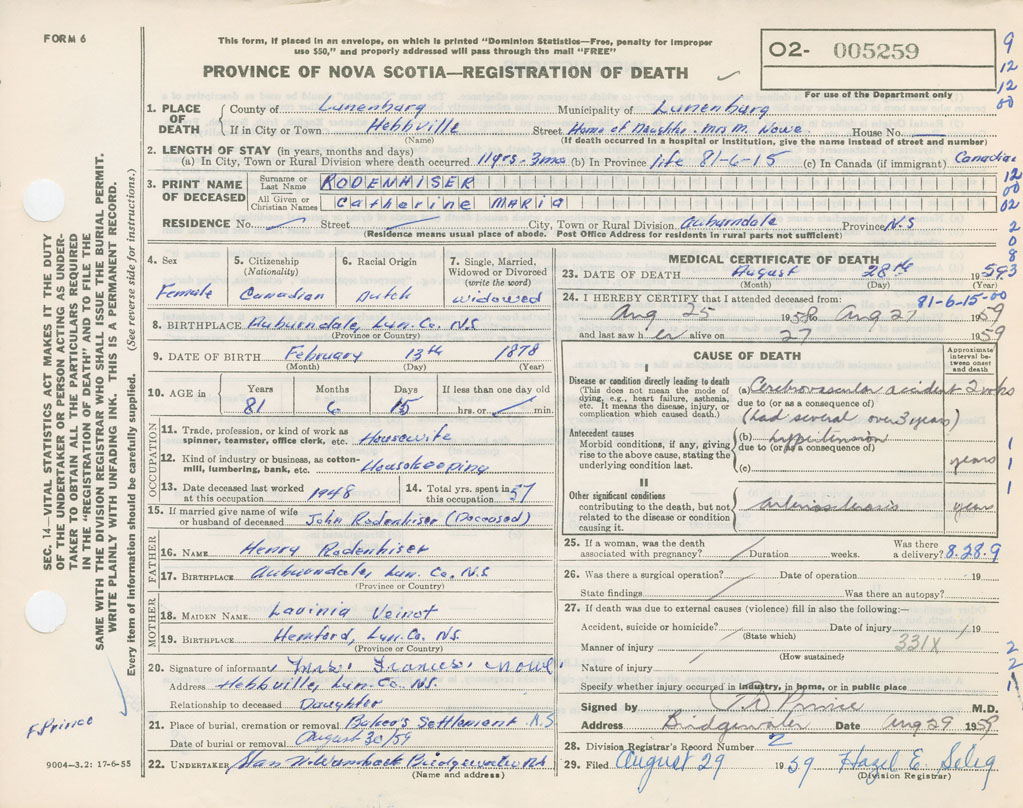 FORM 6
This form, if placed in an envelope, on which is printed "Dominion Statistics—Free, penalty for improper
use $50," and properly addressed will pass through the mail "FREE"
PROVINCE OF NOVA SCOTIA—REGISTRATION OF DEATH
O2- 005259
For use of the Department only
9
12
12
00
1. PLACE OF DEATH
County of Lunenburg Municipality of Lunenburg
If in City or Town Hebbville Street Home of Daughter - Mrs M. Nowe House No.
(Name) (If death occurred in a hospital or institution, give the name instead of street and number)
2. LENGTH OF STAY (in years, months and days)
(a) In City, Town or Rural Division where death occurred 11yrs-3mos (b) In Province life 81-6-15 (c) In Canada (if immigrant) Canadian
3. PRINT NAME OF DECEASED
Surname or Last Name RODENHISER
All Given or Christian Names Catherine MARIA
12
00
02
RESIDENCE No. Street City, Town or Rural Division Auburndale Province N.S
(Residence means usual place of abode. Post Office Address for residents in rural parts not sufficient)
2
0
8
3
4. Sex Female
5. Citizenship (Nationality) Canadian
6. Racial Origin Dutch
7. Single, Married, Widowed or Divorced (write the word) widowed
8. BIRTHPLACE Auburndale, Lun. Co. N.S
(Province or Country)
9. DATE OF BIRTH February 13th 1878
(Month) (Day) (Year)
10. AGE in Years 81 Months 6 Days 15 If less than one day old hrs. or min.
OCCUPATION
11. Trade, profession, or kind of work as
spinner, teamster, office clerk, etc. Housewife
12. Kind of industry or business, as cotton-
mill, lumbering, bank, etc. Housekeeping
13. Date deceased last worked
at this occupation 1948
14. Total yrs. spent in
this occupation 57
15. If married give name of wife
or husband of deceased John Rodenhiser (Deceased)
FATHER
16. NAME Henry Rodenhiser
17. BIRTHPLACE Auburndale, Lun. Co. N.S
(Province or Country)
MOTHER
18. MAIDEN NAME Lavinia Veinot
19. BIRTHPLACE Hemford, Lun. Co. N.S
(Province or Country)
20. Signature of informant Mrs. Frances Nowe
Address Hebbville, Lun. Co. N.S.
Relationship to deceased Daughter
21. Place of burial, cremation or removal Baker's Settlement N.S
Date of burial or removal August 30/59
22. UNDERTAKER Bridgewater
(Name and address)
MEDICAL CERTIFICATE OF DEATH
23. DATE OF DEATH August 28th 1959
(Month) (Day) (Year)
24. I HEREBY CERTIFY that I attended deceased from: 81-6-15-00
Aug 25 19 to Aug 27 1959
and last saw her alive on 27 1959
CAUSE OF DEATH
Approximate interval between onset and death
I
Disease or condition directly leading to death
(This does not mean the mode of
dying, e.g., heart failure, asthenia,
etc. It means the disease, injury, or
complication which caused death.)
(a) Cerebrovascular accident 2 wks
due to (or as a consequence of)
(had several over 3 years)
Antecedent causes
Morbid conditions, if any, giving
rise to the above cause, stating the
underlying condition last.
(b) hypertension years
due to (or as a consequence of)
(c)
1
1
1
II
Other significant conditions
contributing to the death, but not
related to the disease or condition
causing it.
years
25. If a woman, was the death
associated with pregnancy? Duration weeks. Was there
a delivery? 8.28.9
26. Was there a surgical operation? Date of operation 19
State findings Was there an autopsy?
27. If death was due to external causes (violence) fill in also the following:—
Accident, suicide or homicide? Date of injury 19
(State which)
Manner of injury 331X
(How sustained)
Nature of injury
Specify whether injury occurred in industry, in home, or in public place
2
2
1
Signed by Prince M.D.
Address Bridgewater Date Aug 29 1959
28. Division Registrar's Record Number 2
29. Filed August 29 1959 Hazel E. Seleg
(Division Registrar)
SEC. 14—VITAL STATISTICS ACT MAKES IT THE DUTY
OF THE UNDERTAKER OR PERSON ACTING AS UNDER-
TAKER TO OBTAIN ALL THE PARTICULARS REQUIRED
IN THE "REGISTRATION OF DEATH" AND TO FILE THE
SAME WITH THE DIVISION REGISTRAR WHO SHALL ISSUE THE BURIAL PERMIT.
WRITE PLAINLY WITH UNFADING INK. THIS IS A PERMANENT RECORD.
Every item of information should be carefully supplied. (See reverse side for instructions.)
F. Prince
9004—3.2: 17-6-55